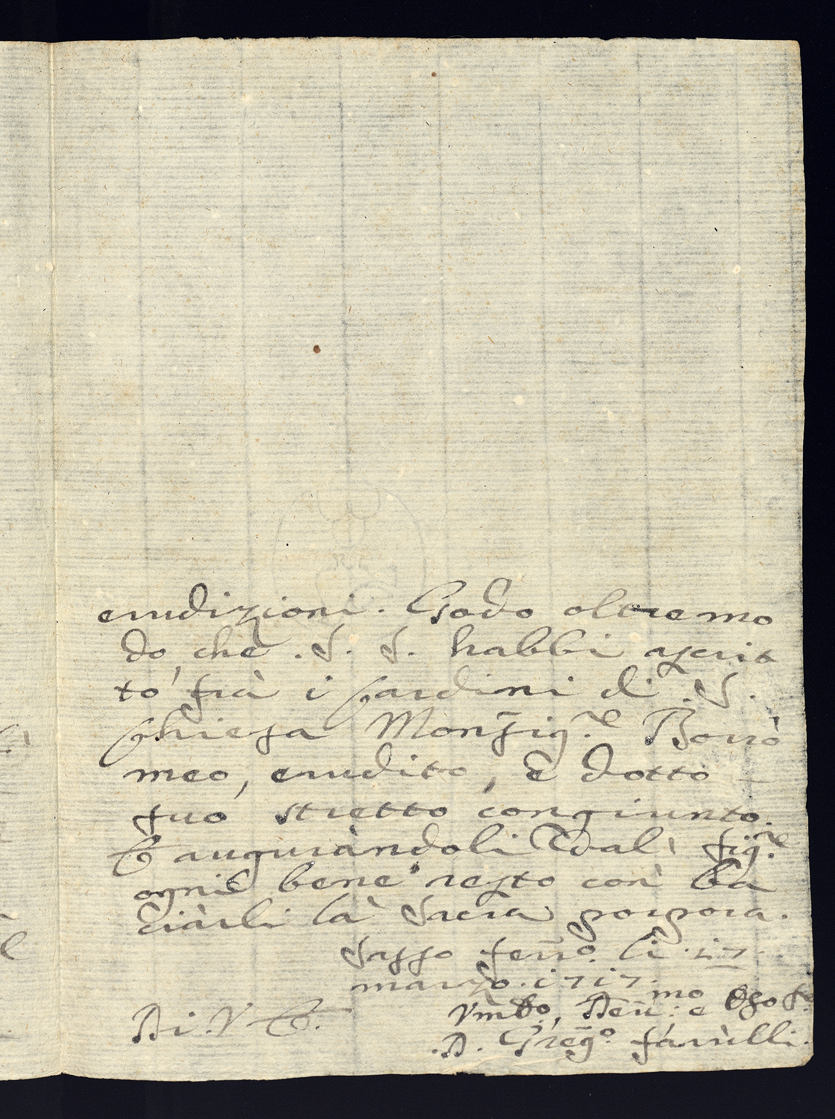 erudizioni. Godo oltremo
do, che .S. S. habbi ascrit
to frà i Cardini di .S.
Chiesa Monsig.re Borro
meo, erudito, è dotto
suo stretto congiunto.
E auguràndoli dal Sig.re
ogni bene resto con ba
ciàrli là sacra porpora.
Sasso ferr.o li .17.
marzo .1717.
Di .V. E.
Vm.o, Deu.mo e
.D. Greg.o